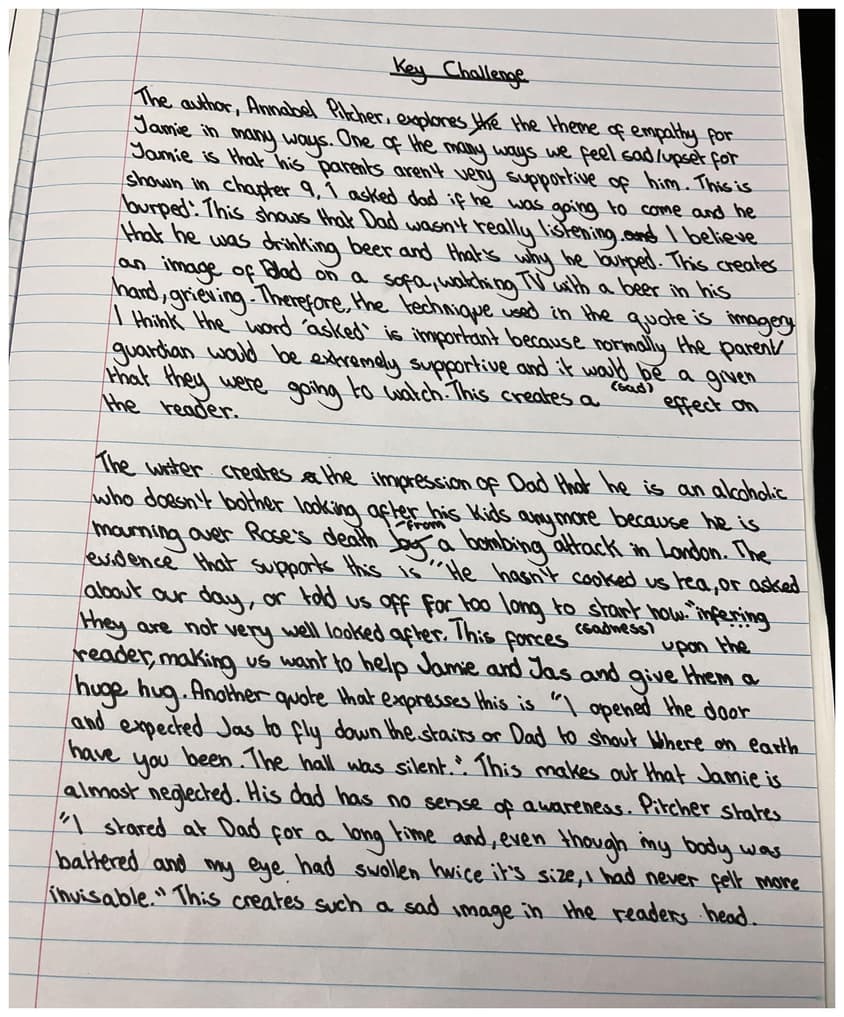 Key Challenge
The author, Annabel Pitcher, explores the the theme of empathy for
Jamie in many ways. One of the many ways we feel sad/upset for
Jamie is that his parents aren't very supportive of him. This is
shown in chapter 9, 'I asked dad if he was going to come and he
burped'. This shows that Dad wasn't really listening. and I believe
that he was drinking beer and that's why he burped. This creates
an image of Dad on a sofa, watching TV with a beer in his
hand, grieving. Therefore, the technique used in the quote is imagery
I think the word 'asked' is important because normally the parent/
guardian would be extremely supportive and it would be a given
that they were going to watch. This creates a (sad) effect on
the reader.
The writer creates a the impression of Dad that he is an alcoholic
who doesn't bother looking after his kids anymore because he is
mourning over Rose's death by from a bombing attack in London. The
evidence that supports this is "He hasn't cooked us tea, or asked
about our day, or told us off for too long to start now." infering
they are not very well looked after. This forces (sadness) upon the
reader, making us want to help Jamie and Jas and give them a
huge hug. Another quote that expresses this is "I opened the door
and expected Jas to fly down the stairs or Dad to shout Where on earth
have you been. The hall was silent.". This makes out that Jamie is
almost neglected. His dad has no sense of awareness. Pitcher states
"I stared at Dad for a long time and, even though my body was
battered and my eye had swollen twice it's size, I had never felt more
invisable." This creates such a sad image in the readers head.